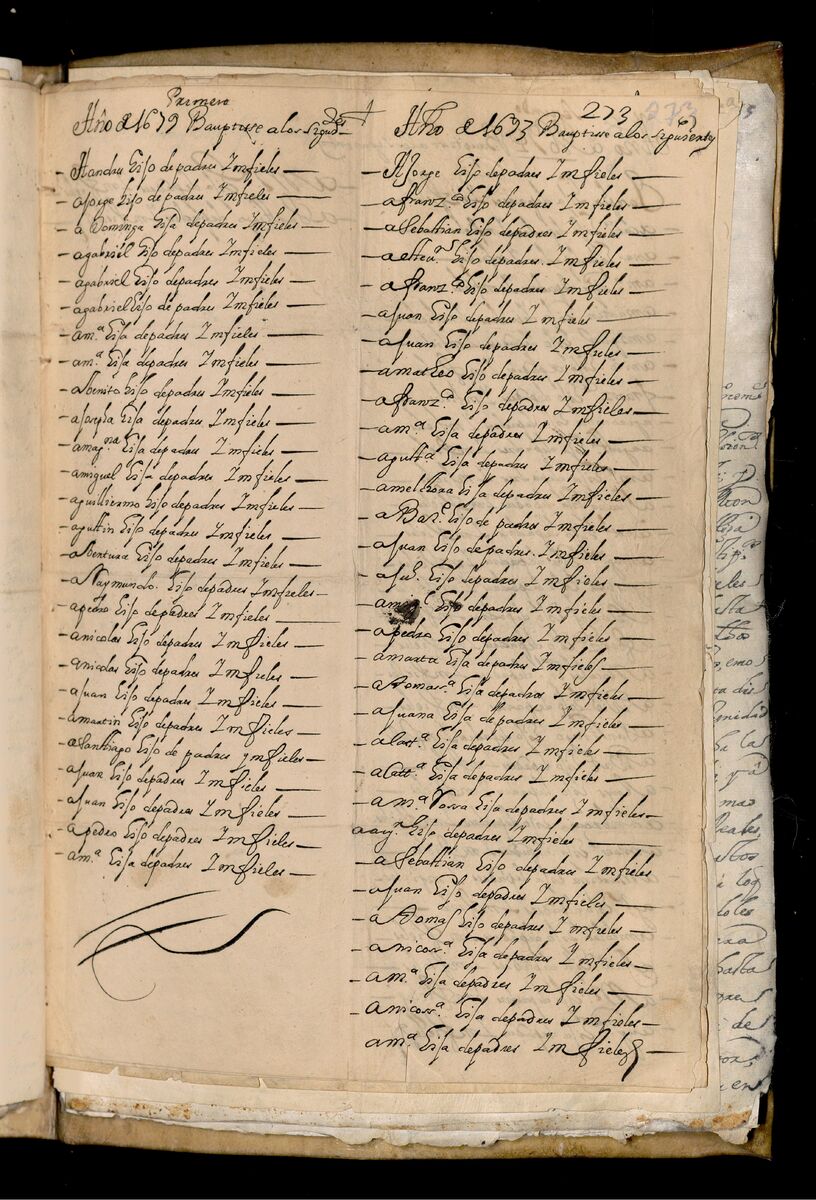 Primero
Año de 1679 Bautise a los siguientes
273
- A Andres hijo de padres Imfieles
- a Jorge hijo de padres Imfieles
- a Dominga hija de padres Imfieles
- a gabriel hijo de padres Imfieles
- a gabriel hijo de padres Imfieles
- a gabriel hijo de padres Imfieles
- a m.ª hija de padres Imfieles
- a m.ª hija de padres Imfieles
- a benito hijo de padres Imfieles
- a Josepha hija de padres Imfieles
- a mag.na hija de padres Imfieles
- a miguel hijo de padres Imfieles
- a guilliermo hijo de padres Imfieles
- a gustin hijo de padres Imfieles
- a Bentura hijo de padres Imfieles
- a Raymundo hijo de padres Imfieles
- a pedro hijo de padres Imfieles
- a nicolas hijo de padres Imfieles
- a nicolas hijo de padres Imfieles
- a Juan hijo de padres Imfieles
- a martin hijo de padres Imfieles
- a Santhiago hijo de padres ymfieles
- a Juan hijo de padres Imfieles
- a Juan hijo de padres Imfieles
- a pedro hijo de padres Imfieles
- a m.ª hija de padres Imfieles
Año de 1693 Bauptisse a los siguientes
- A Jorge hijo de padres Imfieles
- a franz.co hijo de padres Imfieles
- a Sebastian hijo de padres Imfieles
- a hijo de padres Imfieles
- a franz.co hijo de padres Imfieles
- a Juan hijo de padres Imfieles
- a Juan hijo de padres Imfieles
- a matheo hijo de padres Imfieles
- a franz.co hijo de padres Imfieles
- a m.ª hija de padres Imfieles
- a gust.ª hija de padres Imfieles
- a melchora hija de padres Imfieles
- a Bar.e hijo de padres Imfieles
- a Juan hijo de padres Imfieles
- a hijo de padres Imfieles
- a hijo de padres Imfieles
- a pedro hijo de padres Imfieles
- a marta hija de padres Imfieles
- a Tomas.ª hija de padres Imfieles
- a Juana hija de padres Imfieles
- a Cast.ª hija de padres Imfieles
- a Catt.ª hija de padres Imfieles
- a m.ª Rossa hija de padres Imfieles
a hijo de padres Imfieles
- a Sebastian hijo de padres Imfieles
- a Juan hijo de padres Imfieles
- a Tomas hijo de padres Imfieles
- a nicos.ª hija de padres Imfieles
- a m.ª hija de padres Imfieles
- a nicos.ª hija de padres Imfieles
a m.ª hija de padres Imfieles